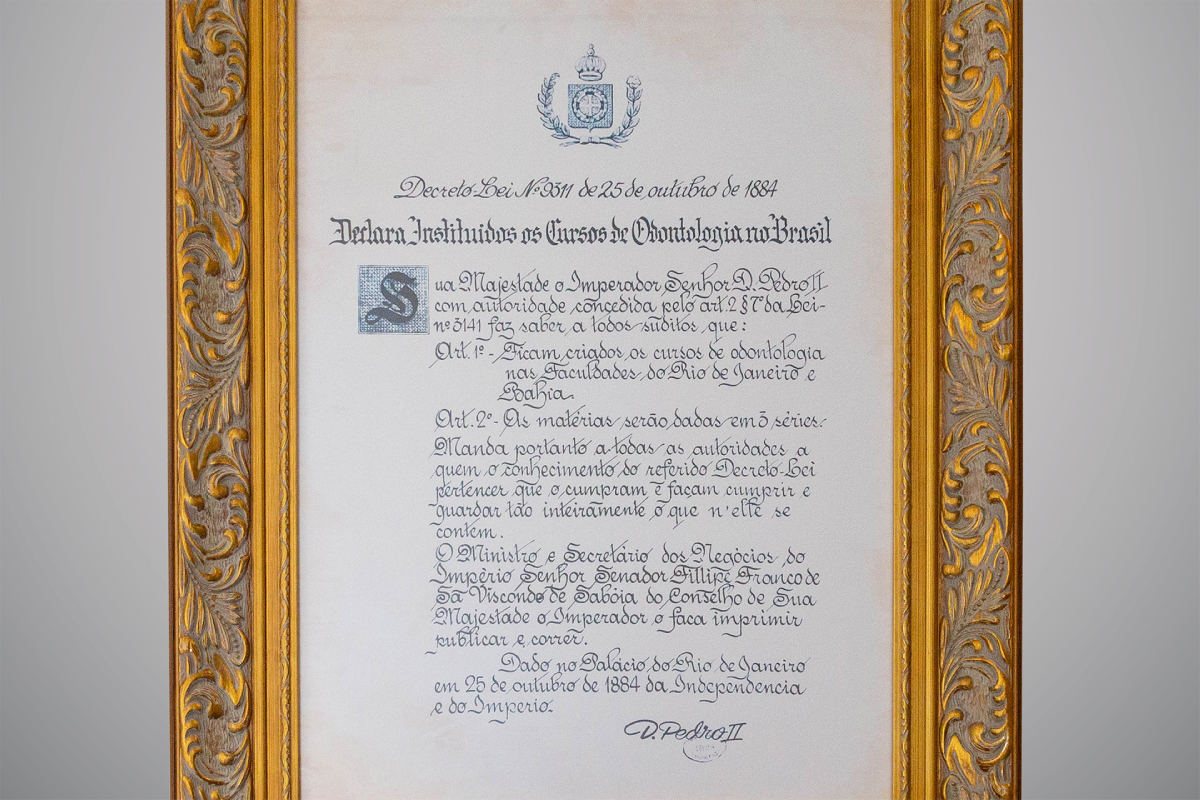 Decreto-Lei Nº 9311 de 25 de outubro de 1884
Declara Instituidos os Cursos de Odontologia no Brasil
Sua Majestade o Imperador Senhor D. Pedro II
com autoridade concedida pelo art. 2 § 7º da Lei-
nº 3141 faz saber a todos suditos que:
Art. 1º - Ficam criados os cursos de odontologia
nas Faculdades do Rio de Janeiro e
Bahia.
Art. 2º - As matérias serão dadas em 3 séries.
Manda portanto a todas as autoridades a
quem o conhecimento do referido Decreto-Lei
pertencer que o cumpram e façam cumprir e
guardar tão inteiramente o que n'elle se
contém.
O Ministro e Secretário dos Negócios do
Império Senhor Senador Fillipe Franco de
Sá Visconde de Sabóia do Conselho de Sua
Majestade o Imperador o faca imprimir
publicar e correr.
Dado no Palácio do Rio de Janeiro
em 25 de outubro de 1884 da Independencia
e do Imperio.
D. Pedro II